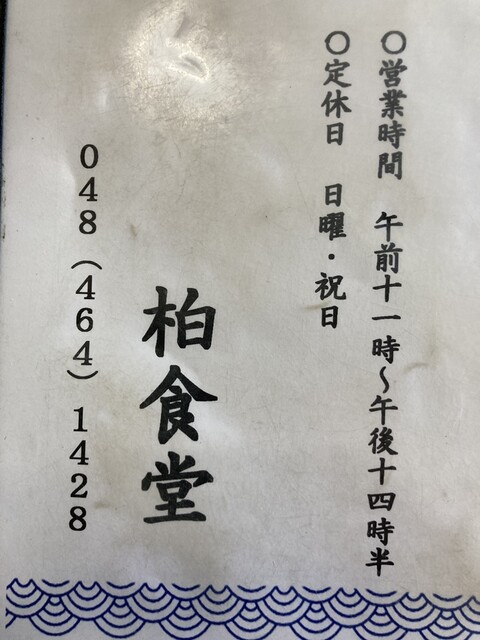 〇営業時間 午前十一時～午後十四時半
〇定休日 日曜・祝日
柏食堂
048(464)1428